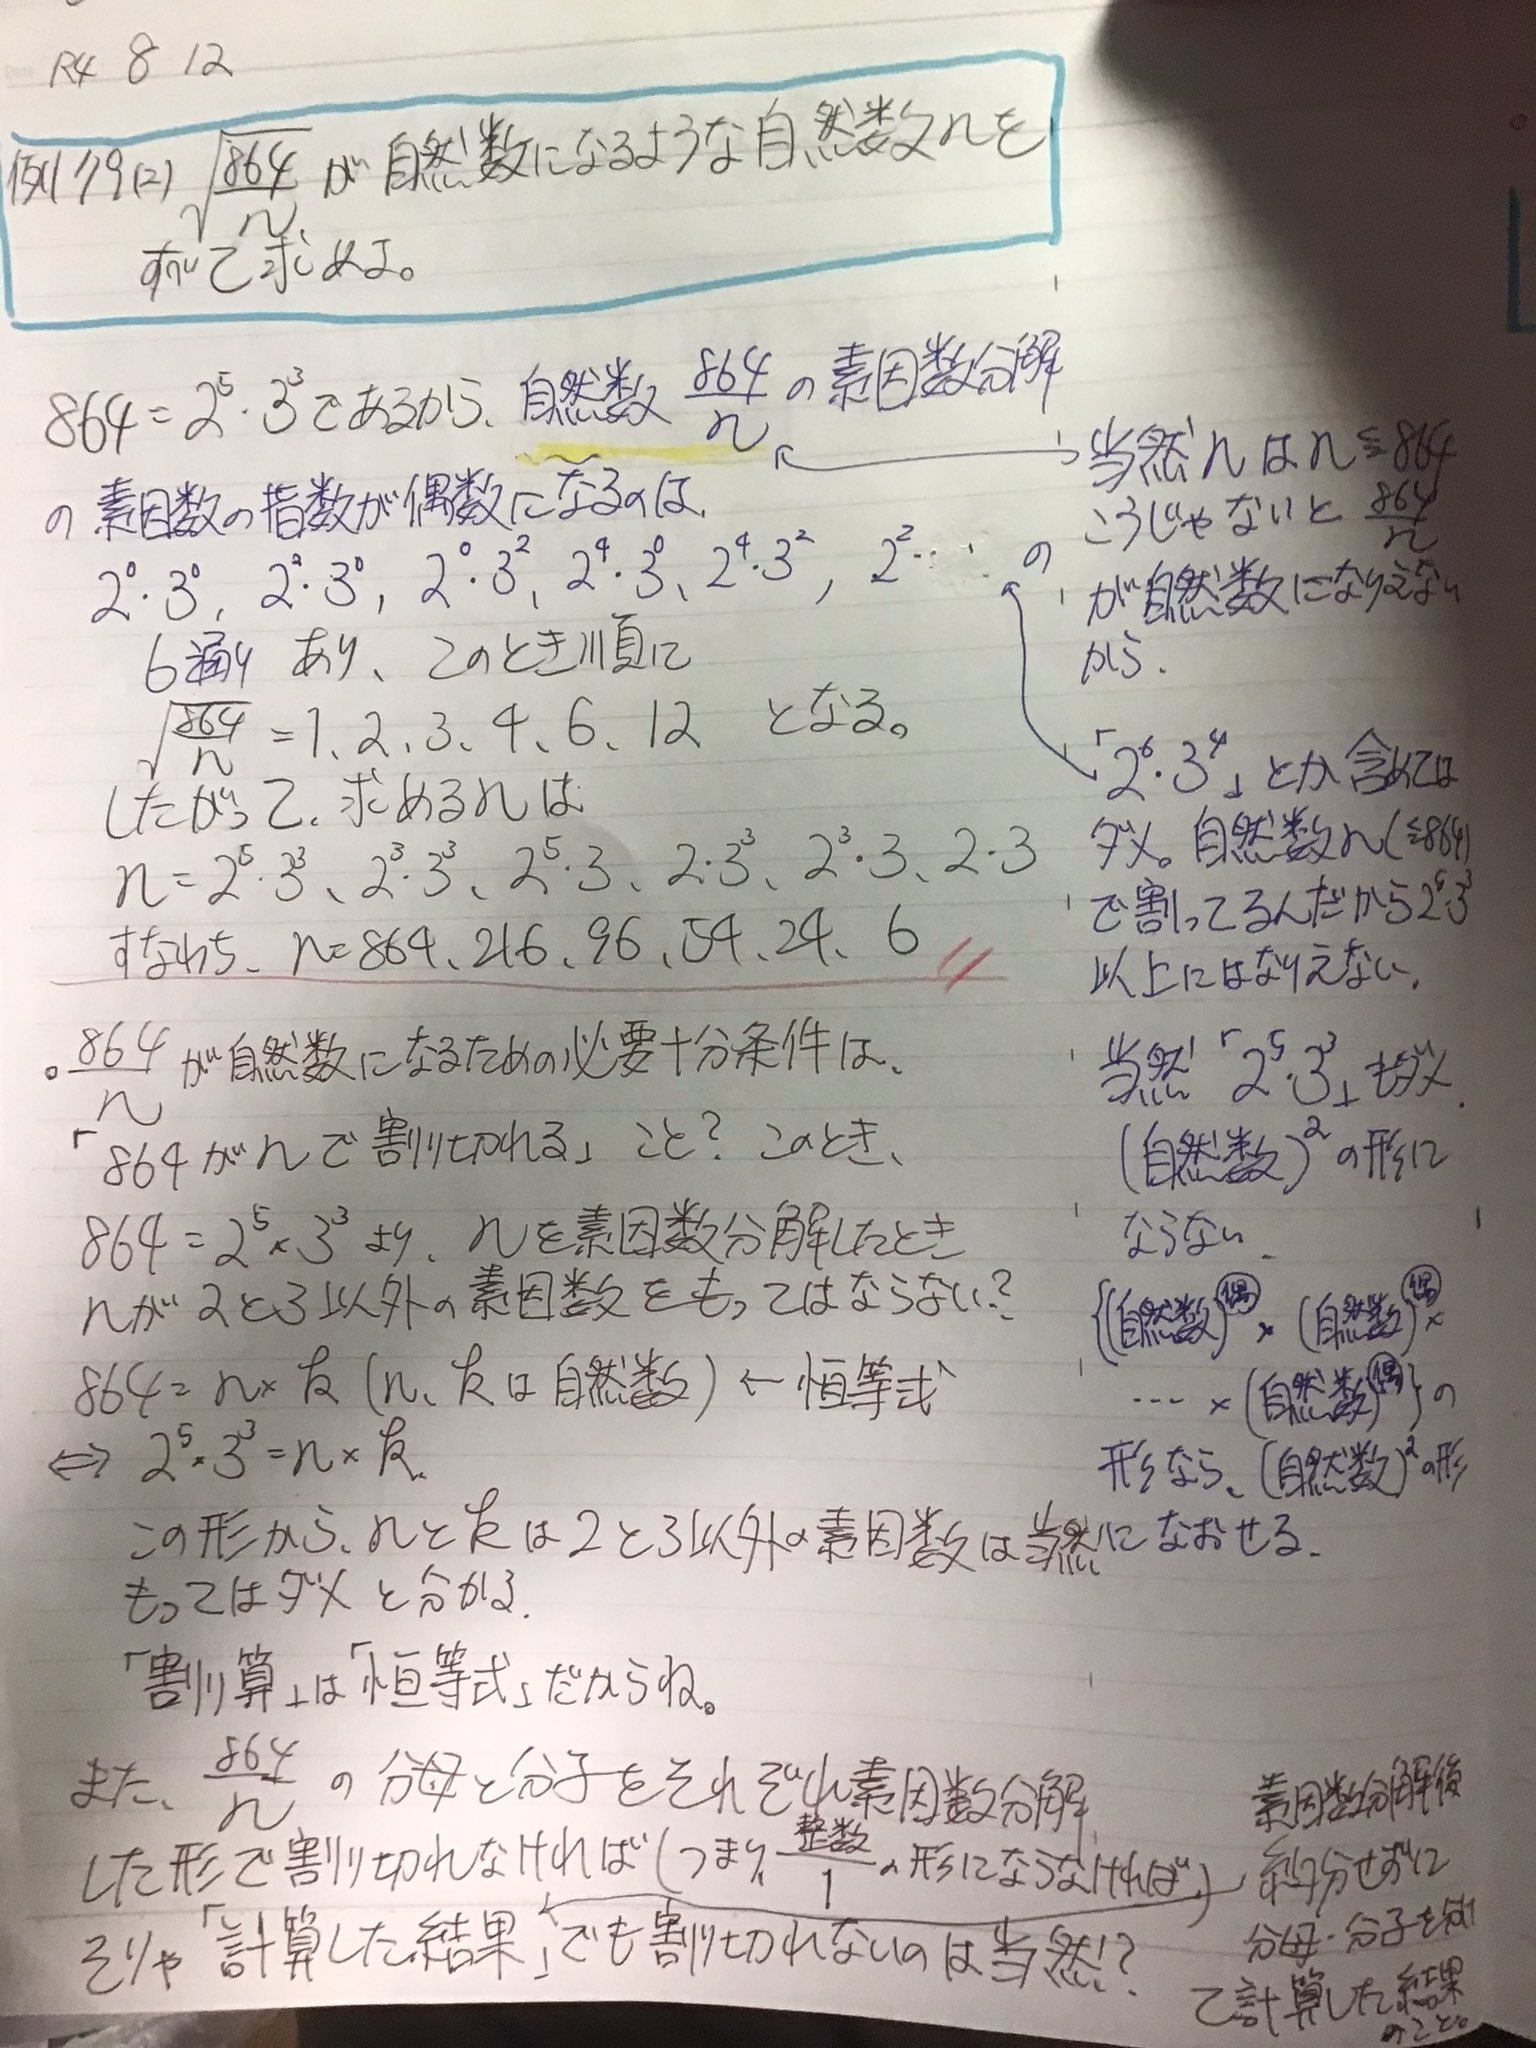 R4 8 12
例179(2) √(864/n) が自然数になるような自然数nを
すべて求めよ。
864=2⁵・3³であるから、自然数 864/n の素因数分解
の素因数の指数が偶数になるのは、
2⁰・3⁰, 2²・3⁰, 2⁰・3², 2⁴・3⁰、2⁴・3², 2²・ の
6通りあり、このとき順に
√(864/n) =1、2、3、4、6、12 となる。
したがって、求めるnは
n=2⁵・3³、2³・3³、2⁵・3、2・3³、2³・3、2・3
すなわち、n=864、216、96、54、24、6
。864/n が自然数になるための必要十分条件は、
「864がnで割り切れる」こと？このとき、
864=2⁵×3³より、nを素因数分解したとき
nが2と3以外の素因数をもってはならない？
864=n×k(n、kは自然数)←恒等式
⇔ 2⁵×3³=n×k
この形から、nとkは2と3以外の素因数は当然
もってはダメと分かる.
「割り算」は「恒等式」だからね。
また、864/n の分母と分子をそれぞれ素因数分解
した形で割り切れなければ(つまり、整数/1の形にならなければ)
そりゃ「計算した結果」でも割り切れないのは当然！？
当然nはn≦864
こうじゃないと 864/n
が自然数になりえない
から.
「2⁶・3⁴」とか含めては
ダメ。自然数n(≦864)
で割ってるんだから2⁵・3³
以上にはなりえない.
当然「2⁵・3³」もダメ.
(自然数)²の形に
ならない.
{(自然数)^偶×(自然数)^偶×
…×(自然数)^偶}の
形なら、(自然数)²の形
になおせる.
素因数分解後
約分せずに
分母・分子を
て計算した結果
のこと。